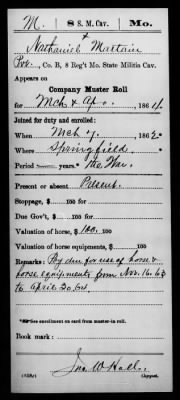 M. | 8 S. M. Cav. | Mo.
Nathaniel Martain
Pvt., Co. B, 8 Reg't Mo. State Militia Cav.
Appears on
Company Muster Roll
for Mch & Ap., 1864.
Joined for duty and enrolled:
When Mch 7, 1862
Where Springfield.
Period years. the War.
Present or absent Present.
Stoppage, $ 100 for
Due Gov't, $ 100 for
Valuation of horse, $ 100. 100
Valuation of horse equipments, $ 100
Remarks: Pay due for use of horse &
horse equipments from Nov. 16. 63
to April 30, 64.
*See enrollment on card from muster-in roll.
Book mark:
Jno. W. Hall.
Copyist.